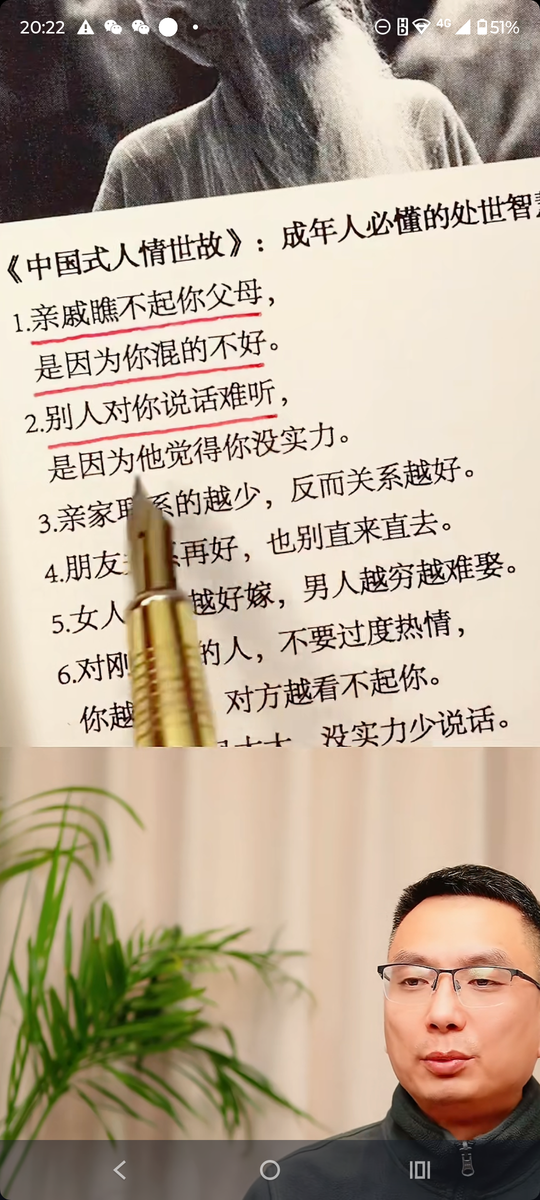 20:22
4G
51%
《中国式人情世故》:成年人必懂的处世智
1.亲戚瞧不起你父母,
是因为你混的不好。
2.别人对你说话难听,
是因为他觉得你没实力。
3.亲家 系的越少,反而关系越好。
4.朋友 再好,也别直来直去。
5.女人 越好嫁,男人越穷越难娶。
6.对刚 的人,不要过度热情,
你越 对方越看不起你。
没实力少说话。